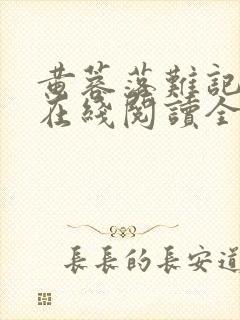 黄蓉落難記
在綫閱讀全
長長的長安道